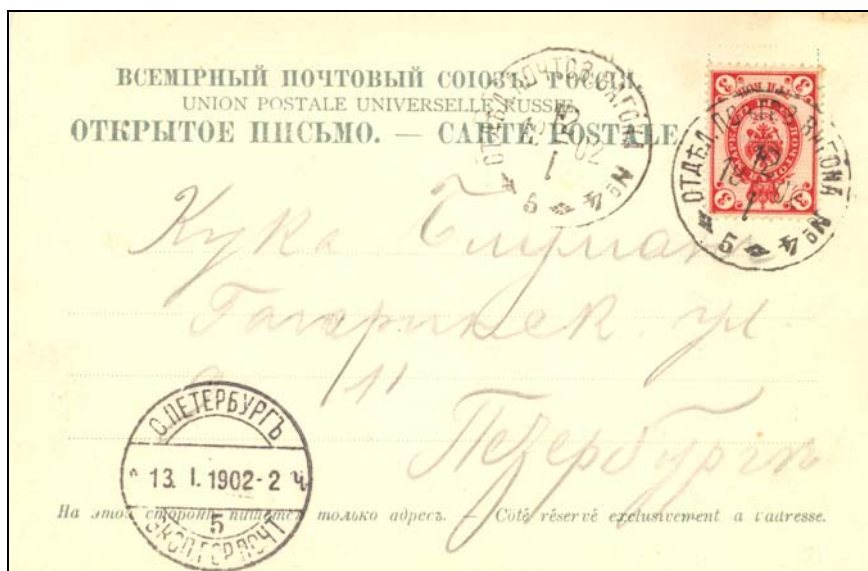 ВСЕМІРНЫЙ ПОЧТОВЫЙ СОЮЗЪ. РОССІЯ.
UNION POSTALE UNIVERSELLE. RUSSIE.
ОТКРЫТОЕ ПИСЬМО. — CARTE POSTALE.
ОТДѢЛ. ПОЧТОВ. ВАГОНА № 4
12 I 02
5
3 3
ОТДѢЛ. ПОЧТОВ. ВАГОНА № 4
12 I
5
3 3
Кука
Гагаринск. ул
11
Петербургъ
С.ПЕТЕРБУРГЪ
13. I. 1902 - 2 ч.
5
ЭКСП.ГОР.ПОЧТ
На этой сторонѣ пишется только адресъ. — Côté réservé exclusivement a l'adresse.